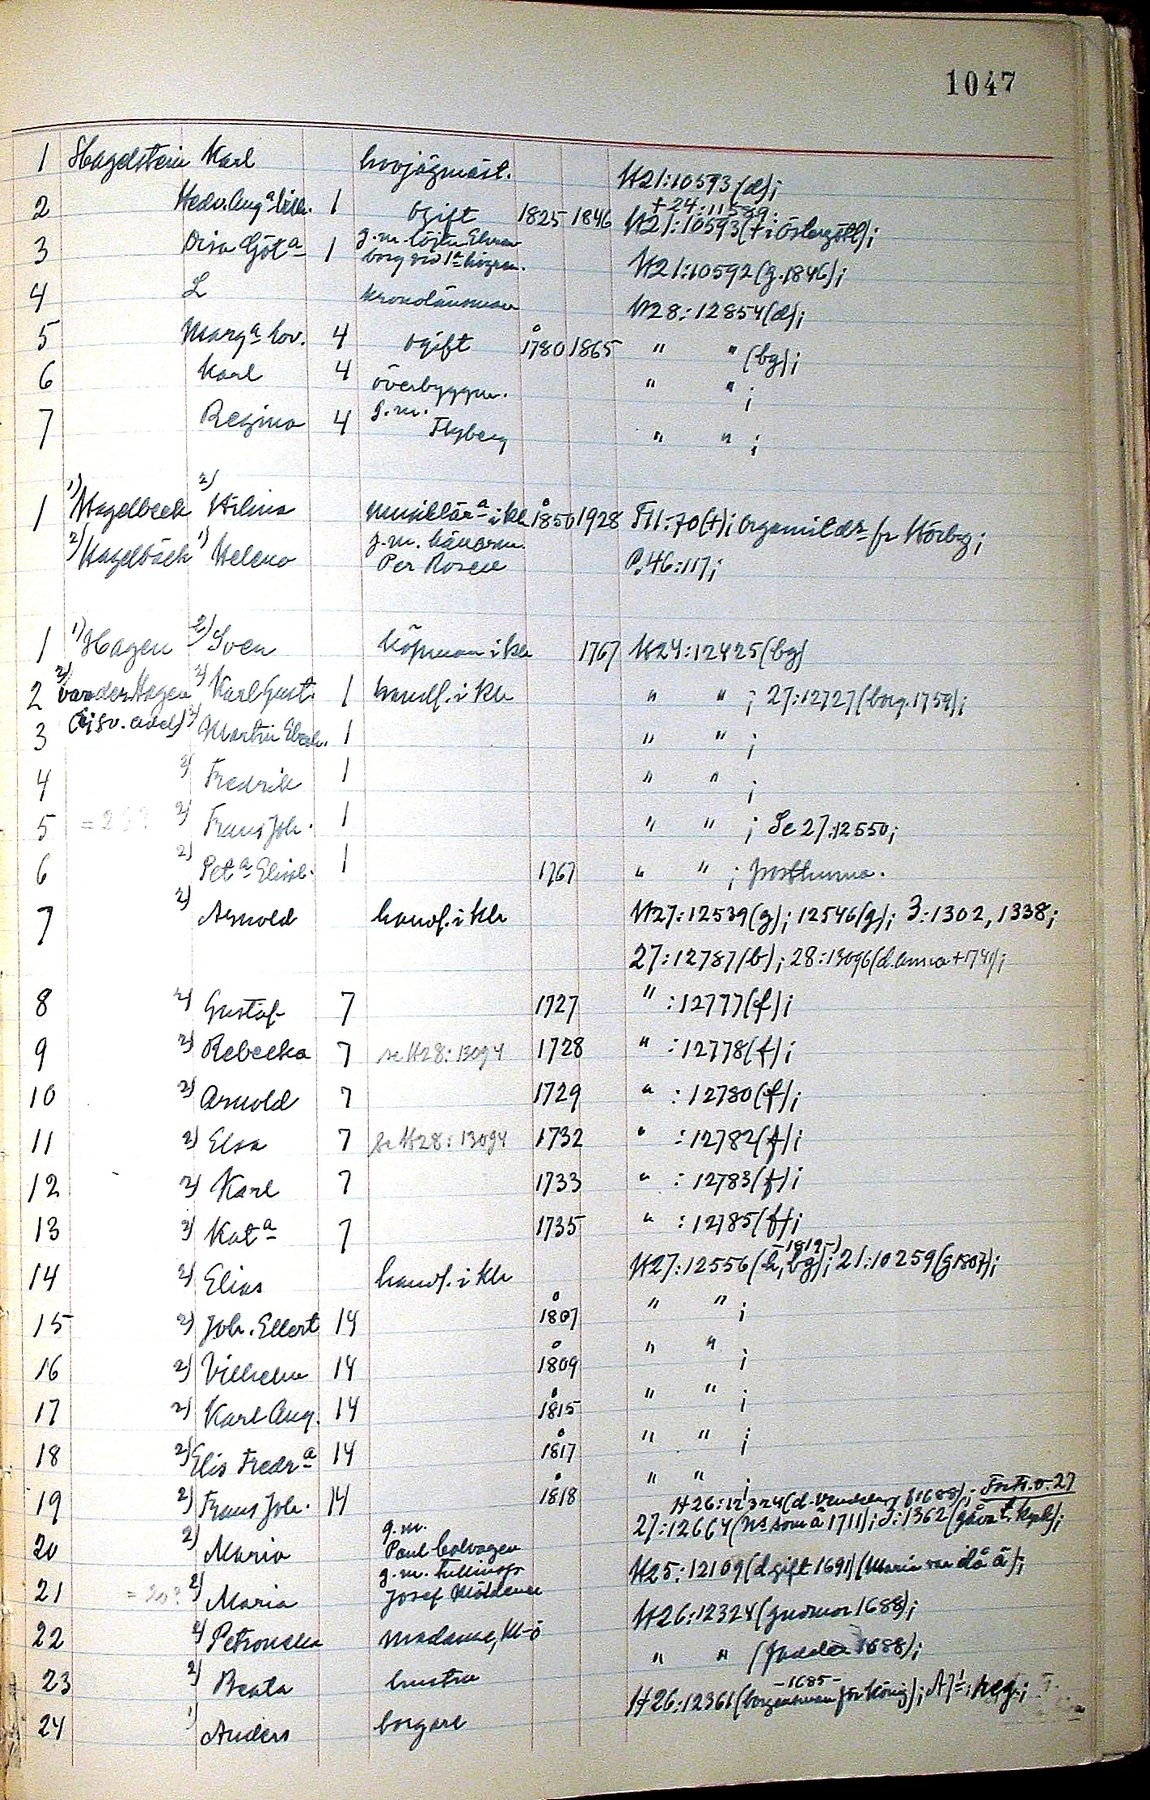 1047
1 Hagelstein Karl hovjägmäst. H21:10593(d);
+24:11589.
2 Hedv. Aug.a 1 ogift 1825 1846 H21:10593(+ i Östergötl);
3 Disa Göt.a 1 g.m. löjtn Ehren
borg vid 1a H21:10592(g.1846);
4 L kronolänsman H28:12854(d);
5 Marg.a Lov. 4 ogift 1780 1865 " " (bg);
6 Karl 4 överbyggm. " " ;
7 Regina 4 g.m.
Flyberg " " ;
1 1) Hagelbeck 2) Helina musiklär.a i Kh 1850 1928 F11:70(+);
2) Hagelbäck 1) Helena g.m.
Per Rosen P.46:117;
1 1) Hagen 2) Sven köpman i Kh 1767 H24:12425(bg)
2 2) van der Hagen 2) Karl Gust. 1 handl. i Kh " " ; 27:12727(borg.1759);
3 (ej sv. adel) 2) Martin Eberh. 1 " " ;
4 2) Fredrik 1 " " ;
5 2) Frans Joh. 1 " " ; Se 27:12550;
6 2) Pet.a Elisab. 1 1767 " " ; posthuma.
7 2) Arnold handl. i Kh H27:12539(g); 12546(g); 3:1302, 1338;
27:12787(b); 28:13096(d. Anna +1741);
8 2) Gustaf 7 1727 " :12777(f);
9 2) Rebecka 7 se H28:13094 1728 " :12778(f);
10 2) Arnold 7 1729 " :12780(f);
11 2) Elsa 7 se H28:13094 1732 " :12782(f);
12 2) Karl 7 1733 " :12783(f);
13 2) Kat.a 7 1735 " :12785(f);
-1819-)
14 2) Elias handl. i Kh H27:12556(h, bg); 21:10259(g1807);
15 2) Joh. Ellert 14 1807 " " ;
16 2) Vilhelm 14 1809 " " ;
17 2) Karl Aug. 14 1815 " " ;
18 2) Elis Fredr.a 14 1817 " " ;
19 2) Frans Joh. 14 1818 " " ;
H26:12324(d. f1688);
20 2) Maria g.m.
Paul 27:12664(N:o som å 1711); 3:1362
21 =20? 2) Maria g.m. Tullinsp
Josef H25:12109(d gift 1691)(Maria var då ä);
22 2) Petronella madame, Kh-ö H26:12324(gudmor 1688);
23 2) Beata hustru " " (fadder 1688);
-1685-
24 1) Anders borgare H26:12361(borgensman för König);